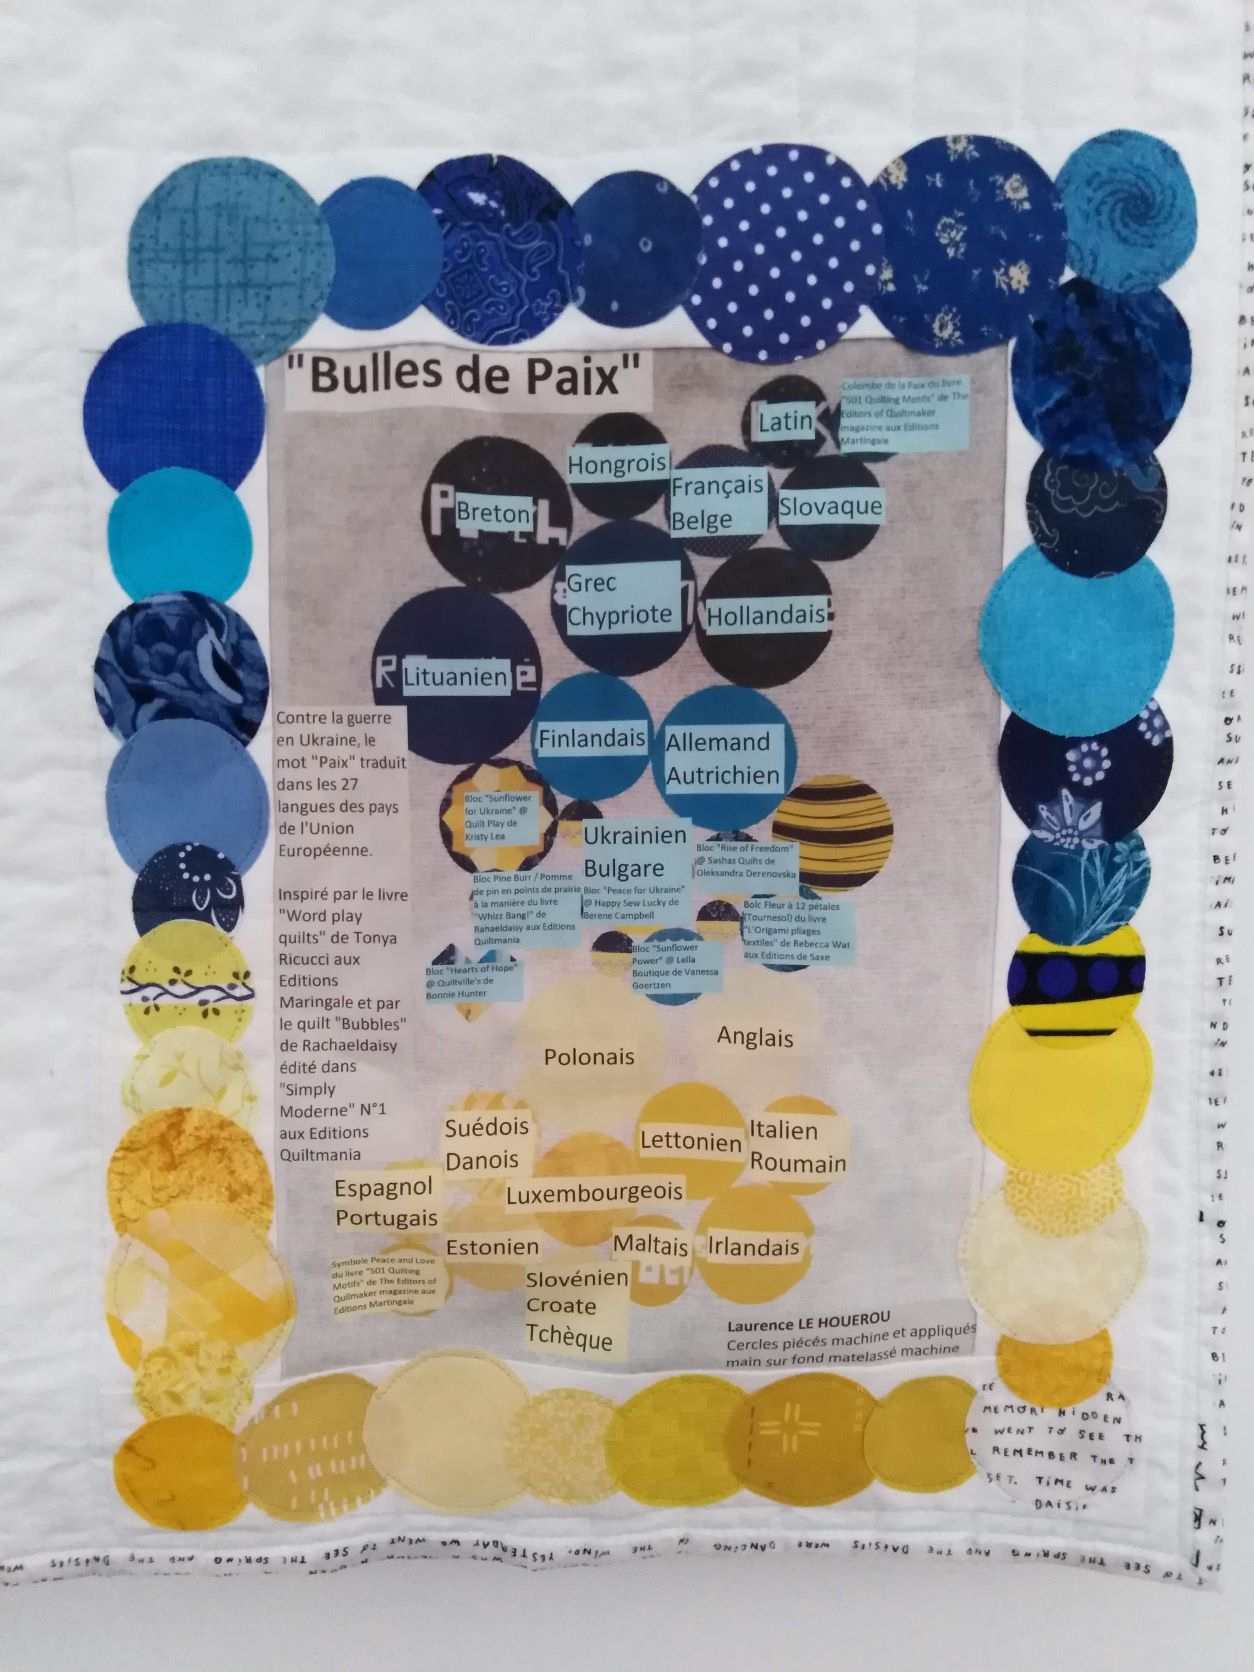 "Bulles de Paix"
Latin
Colombe de la Paix du livre
"501 Quilting Motifs" de The
Editors of Quiltmaker
magazine aux Editions
Martingale
Hongrois
Français
Belge
Breton
Slovaque
Grec
Chypriote
Hollandais
Lituanien
Finlandais
Allemand
Autrichien
Contre la guerre
en Ukraine, le
mot "Paix" traduit
dans les 27
langues des pays
de l'Union
Européenne.
Inspiré par le livre
"Word play
quilts" de Tonya
Ricucci aux
Editions
Maringale et par
le quilt "Bubbles"
de Rachaeldaisy
édité dans
"Simply
Moderne" N°1
aux Editions
Quiltmania
Bloc "Sunflower
for Ukraine" @
Quilt Play de
Kristy Lea
Ukrainien
Bulgare
Bloc "Rise of Freedom"
@ Sashas Quilts de
Oleksandra Derenovska
Bloc Pine Burr / Pomme
de pin en points de prairie
à la manière du livre
"Whizz Bang!" de
Rahaeldaisy aux Editions
Quiltmania
Bloc "Peace for Ukraine"
@ Happy Sew Lucky de
Berene Campbell
Bolc Fleur à 12 pétales
(Tournesol) du livre
"L'Origami pliages
textiles" de Rebecca Wat
aux Editions de Saxe
Bloc "Sunflower
Power" @ Leila
Boutique de Vanessa
Goertzen
Bloc "Hearts of Hope"
@ Quiltville's de
Bonnie Hunter
Polonais
Anglais
Suédois
Danois
Lettonien
Italien
Roumain
Espagnol
Portugais
Luxembourgeois
Estonien
Maltais
Irlandais
Symbole Peace and Love
du livre "501 Quilting
Motifs" de The Editors of
Quilmaker magazine aux
Editions Martingale
Slovénien
Croate
Tchèque
Laurence LE HOUEROU
Cercles piécés machine et appliqués
main sur fond matelassé machine
MEMORY HIDDEN
WENT TO SEE
REMEMBER THE
SET. TIME WAS
SEE THE SPRING AND THE DAISIES WERE DANCING IN THE WIND. YESTERDAY WE WENT TO SEE THE SPRING AND THE DAISIES